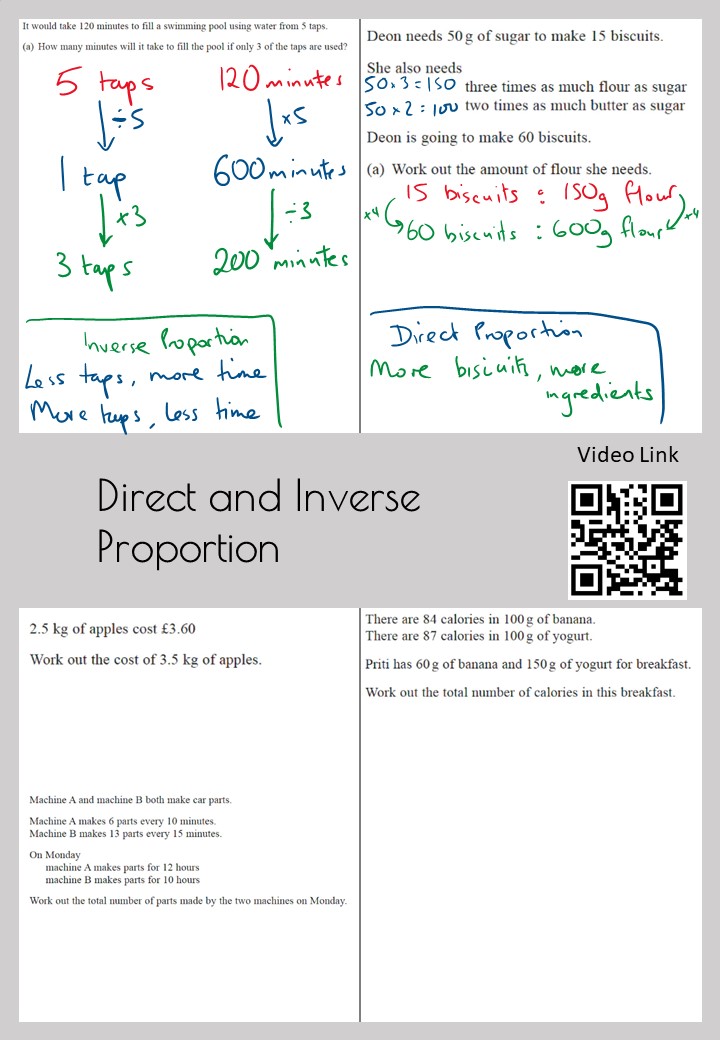 It would take 120 minutes to fill a swimming pool using water from 5 taps.
(a) How many minutes will it take to fill the pool if only 3 of the taps are used?
5 taps 120 minutes
÷5 ×5
1 tap 600 minutes
×3 ÷3
3 taps 200 minutes
Inverse Proportion
Less taps, more time
More taps, less time
Deon needs 50 g of sugar to make 15 biscuits.
She also needs
50×3=150 three times as much flour as sugar
50×2=100 two times as much butter as sugar
Deon is going to make 60 biscuits.
(a) Work out the amount of flour she needs.
15 biscuits : 150g flour
×4 ×4
60 biscuits : 600g flour
Direct Proportion
More biscuits, more
ingredients
Video Link
Direct and Inverse
Proportion
2.5 kg of apples cost £3.60
Work out the cost of 3.5 kg of apples.
Machine A and machine B both make car parts.
Machine A makes 6 parts every 10 minutes.
Machine B makes 13 parts every 15 minutes.
On Monday
machine A makes parts for 12 hours
machine B makes parts for 10 hours
Work out the total number of parts made by the two machines on Monday.
There are 84 calories in 100 g of banana.
There are 87 calories in 100 g of yogurt.
Priti has 60 g of banana and 150 g of yogurt for breakfast.
Work out the total number of calories in this breakfast.